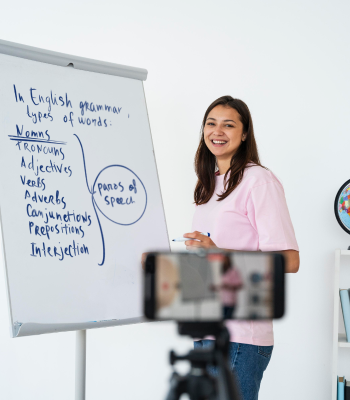 In English grammar,
types of words:
Nouns
Pronouns
Adjectives
Verbs
Adverbs
Conjunctions
Prepositions
Interjection
parts of
speech